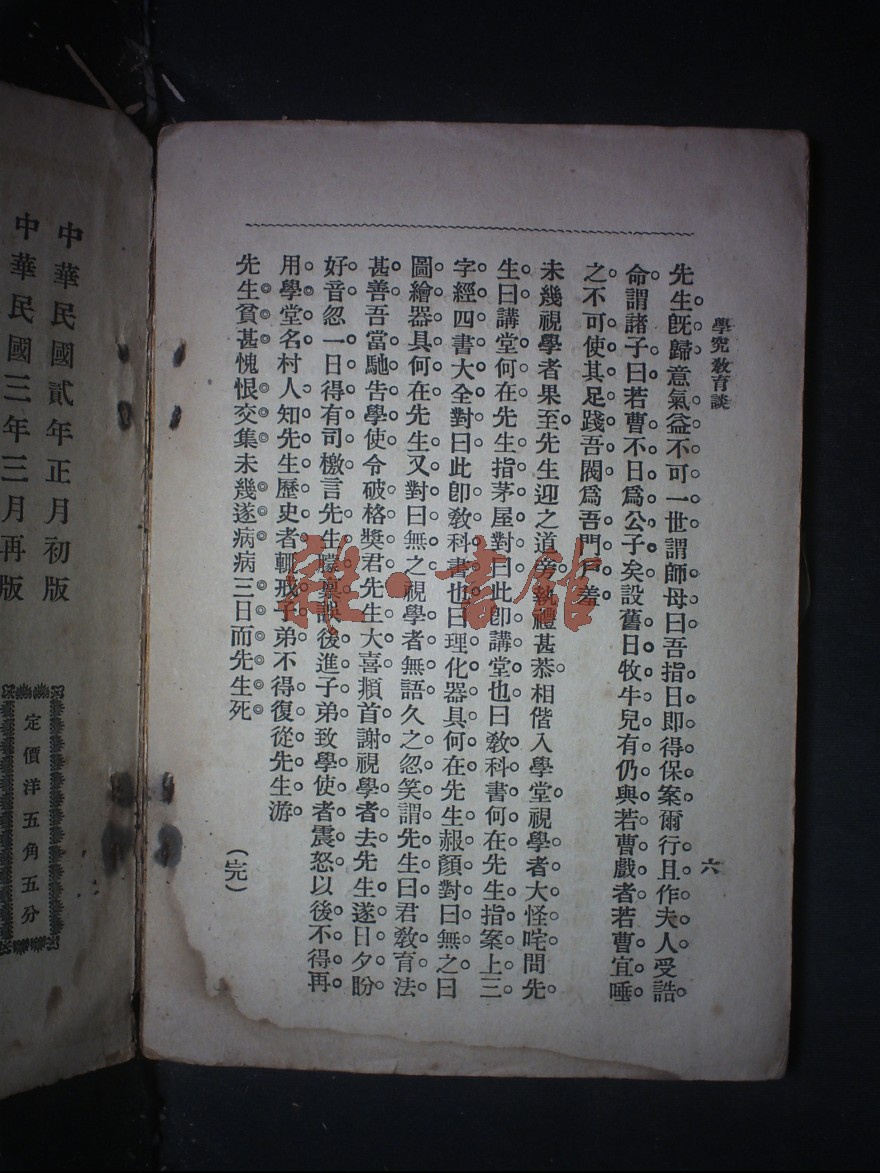 學究教育談
六
先生旣歸意氣益不可一世謂師母曰吾指日即得保案爾行且作夫人受誥
命謂諸子曰若曹不日爲公子矣設舊日牧牛兒有仍與若曹戲者若曹宜唾
之不可使其足踐吾閥爲吾門戶羞
未幾視學者果至先生迎之道旁執禮甚恭相偕入學堂視學者大怪咤問先
生曰講堂何在先生指茅屋對曰此卽講堂也曰敎科書何在先生指案上三
字經四書大全對曰此卽敎科書也曰理化器具何在先生赧顏對曰無之曰
圖繪器具何在先生又對曰無之視學者無語久之忽笑謂先生曰君敎育法
甚善吾當馳告學使令破格獎君先生大喜頫首謝視學者去先生遂日夕盼
好音忽一日得有司檄言先生朦稟誤後進子弟致學使者震怒以後不得再
用學堂名村人知先生歷史者輒戒子弟不得復從先生游
先生貧甚愧恨交集未幾遂病病三日而先生死
（完）
中華民國貳年正月初版
中華民國三年三月再版
定價洋五角五分
雜·書館